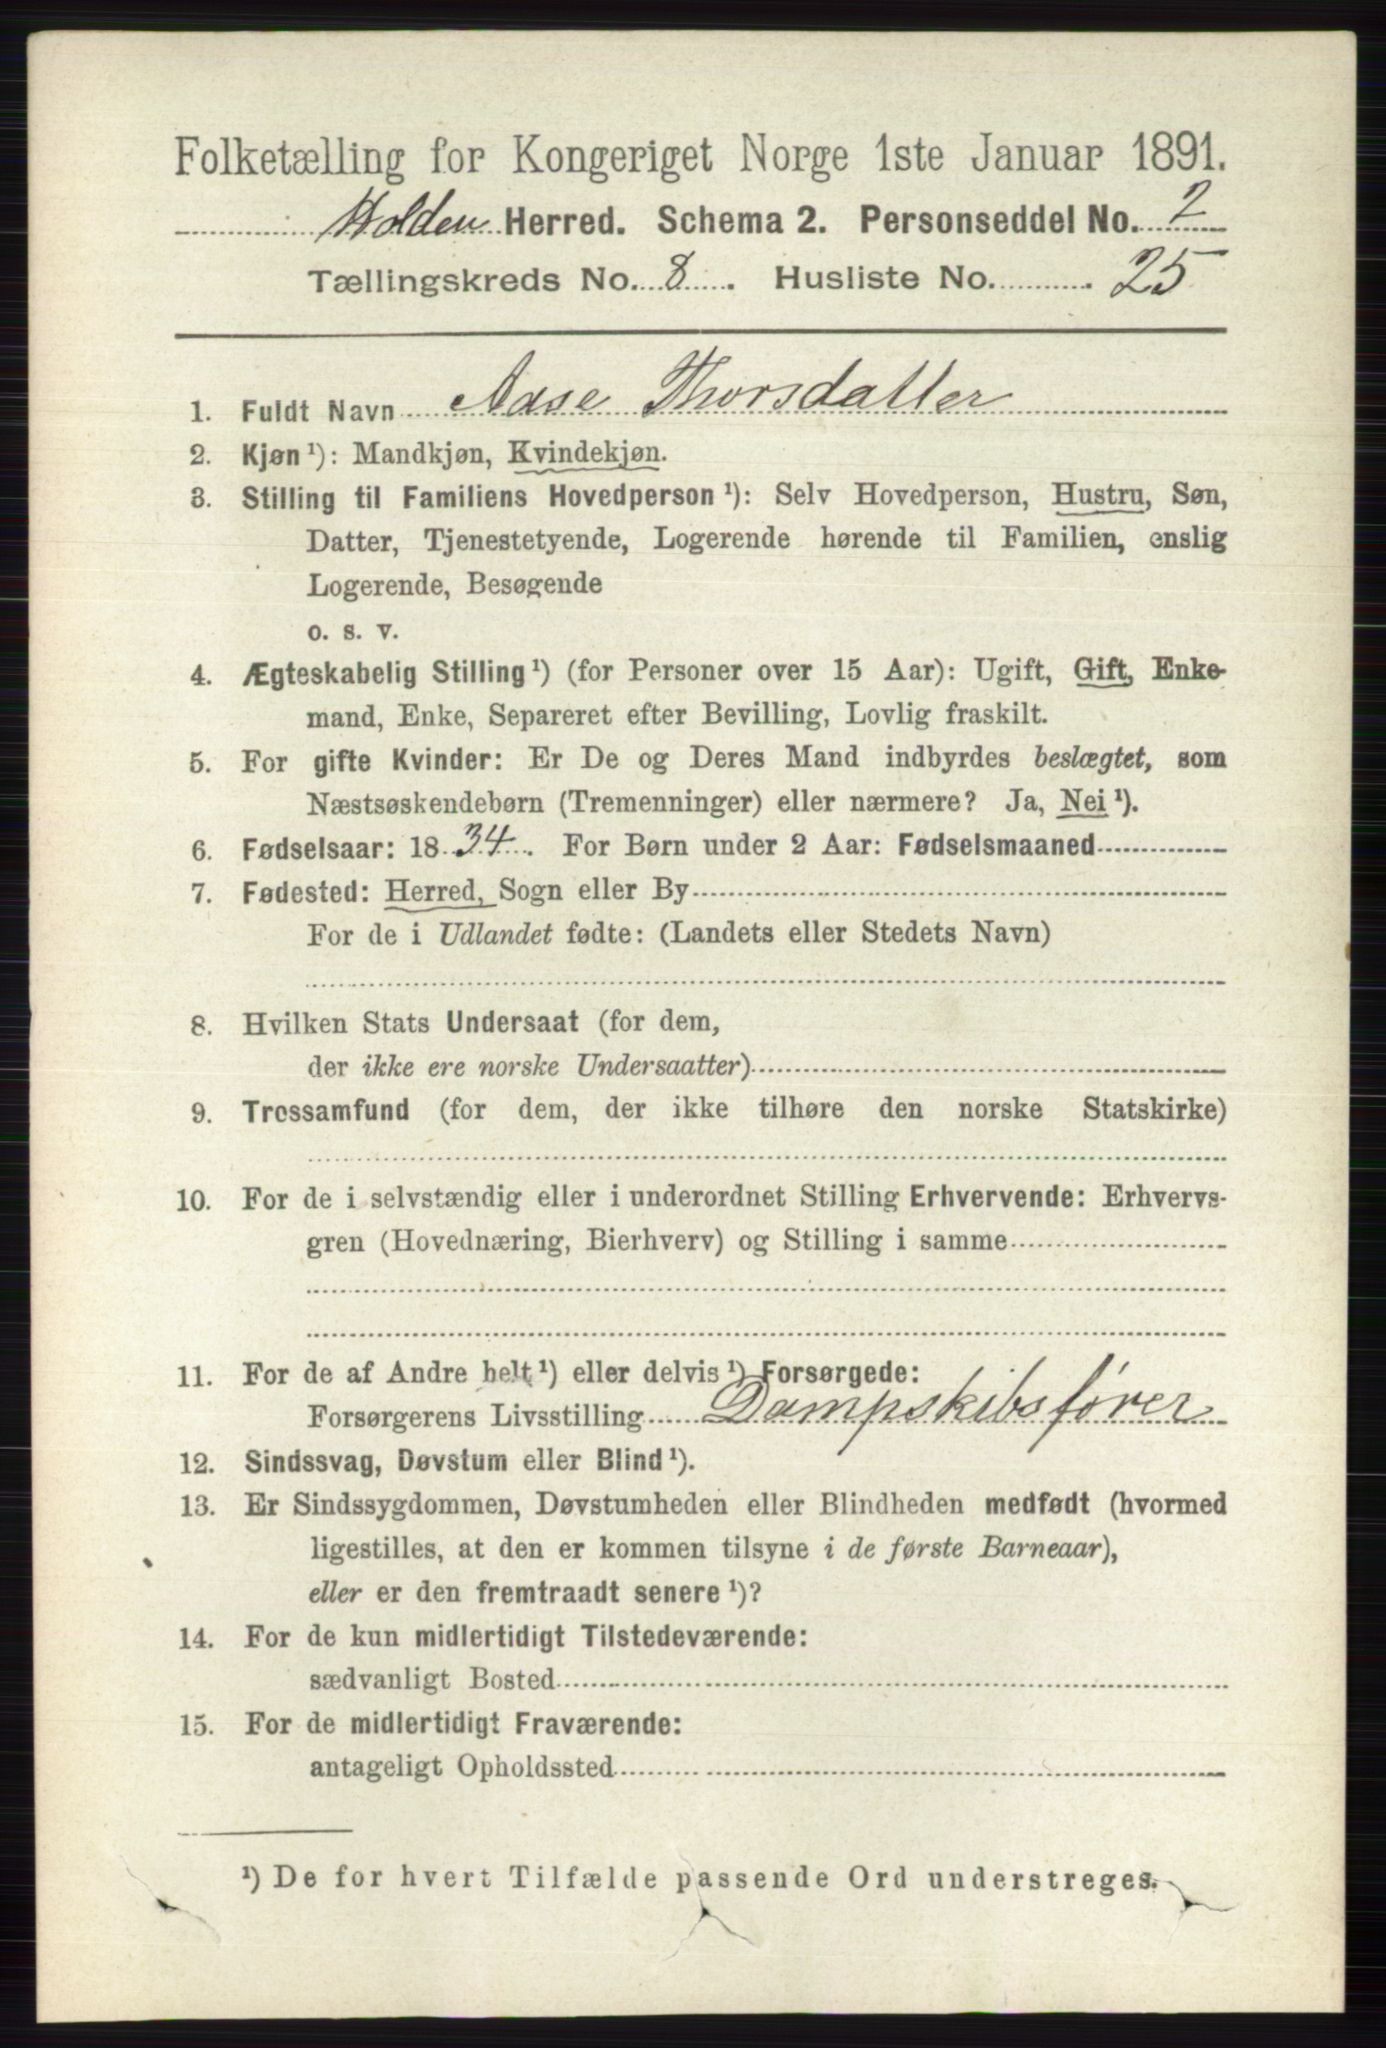 Folketælling for Kongeriget Norge 1ste Januar 1891.
Holden Herred. Schema 2. Personseddel No. 2
Tællingskreds No. 8. Husliste No. 25
1. Fuldt Navn Aase Thorsdatter
2. Kjøn ¹): Mandkjøn, Kvindekjøn.
3. Stilling til Familiens Hovedperson ¹): Selv Hovedperson, Hustru, Søn,
Datter, Tjenestetyende, Logerende hørende til Familien, enslig
Logerende, Besøgende
o. s. v.
4. Ægteskabelig Stilling ¹) (for Personer over 15 Aar): Ugift, Gift, Enke-
mand, Enke, Separeret efter Bevilling, Lovlig fraskilt.
5. For gifte Kvinder: Er De og Deres Mand indbyrdes beslægtet, som
Næstsøskendebørn (Tremenninger) eller nærmere? Ja, Nei ¹).
6. Fødselsaar: 1834. For Børn under 2 Aar: Fødselsmaaned
7. Fødested: Herred, Sogn eller By
For de i Udlandet fødte: (Landets eller Stedets Navn)
8. Hvilken Stats Undersaat (for dem,
der ikke ere norske Undersaatter)
9. Trossamfund (for dem, der ikke tilhøre den norske Statskirke)
10. For de i selvstændig eller i underordnet Stilling Erhvervende: Erhvervs-
gren (Hovednæring, Bierhverv) og Stilling i samme
11. For de af Andre helt ¹) eller delvis ¹) Forsørgede:
Forsørgerens Livsstilling Dampskibsfører
12. Sindssvag, Døvstum eller Blind ¹).
13. Er Sindssygdommen, Døvstumheden eller Blindheden medfødt (hvormed
ligestilles, at den er kommen tilsyne i de første Barneaar),
eller er den fremtraadt senere ¹)?
14. For de kun midlertidigt Tilstedeværende:
sædvanligt Bosted
15. For de midlertidigt Fraværende:
antageligt Opholdssted
¹) De for hvert Tilfælde passende Ord understreges.